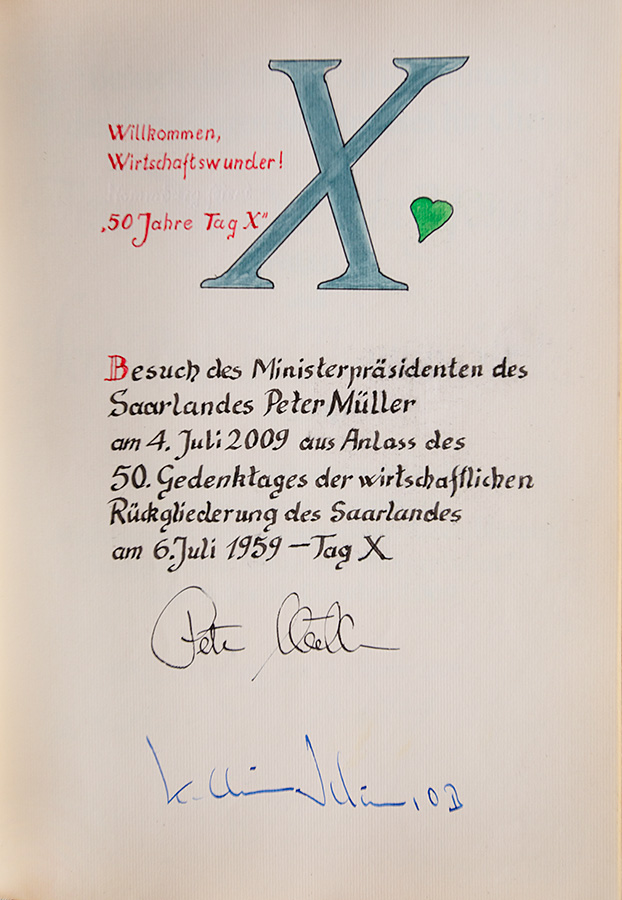 Willkommen,
Wirtschaftswunder!
„50 Jahre Tag X"
X
Besuch des Ministerpräsidenten des
Saarlandes Peter Müller
am 4. Juli 2009 aus Anlass des
50. Gedenktages der wirtschaftlichen
Rückgliederung des Saarlandes
am 6. Juli 1959 – Tag X
Peter Müller
, OB